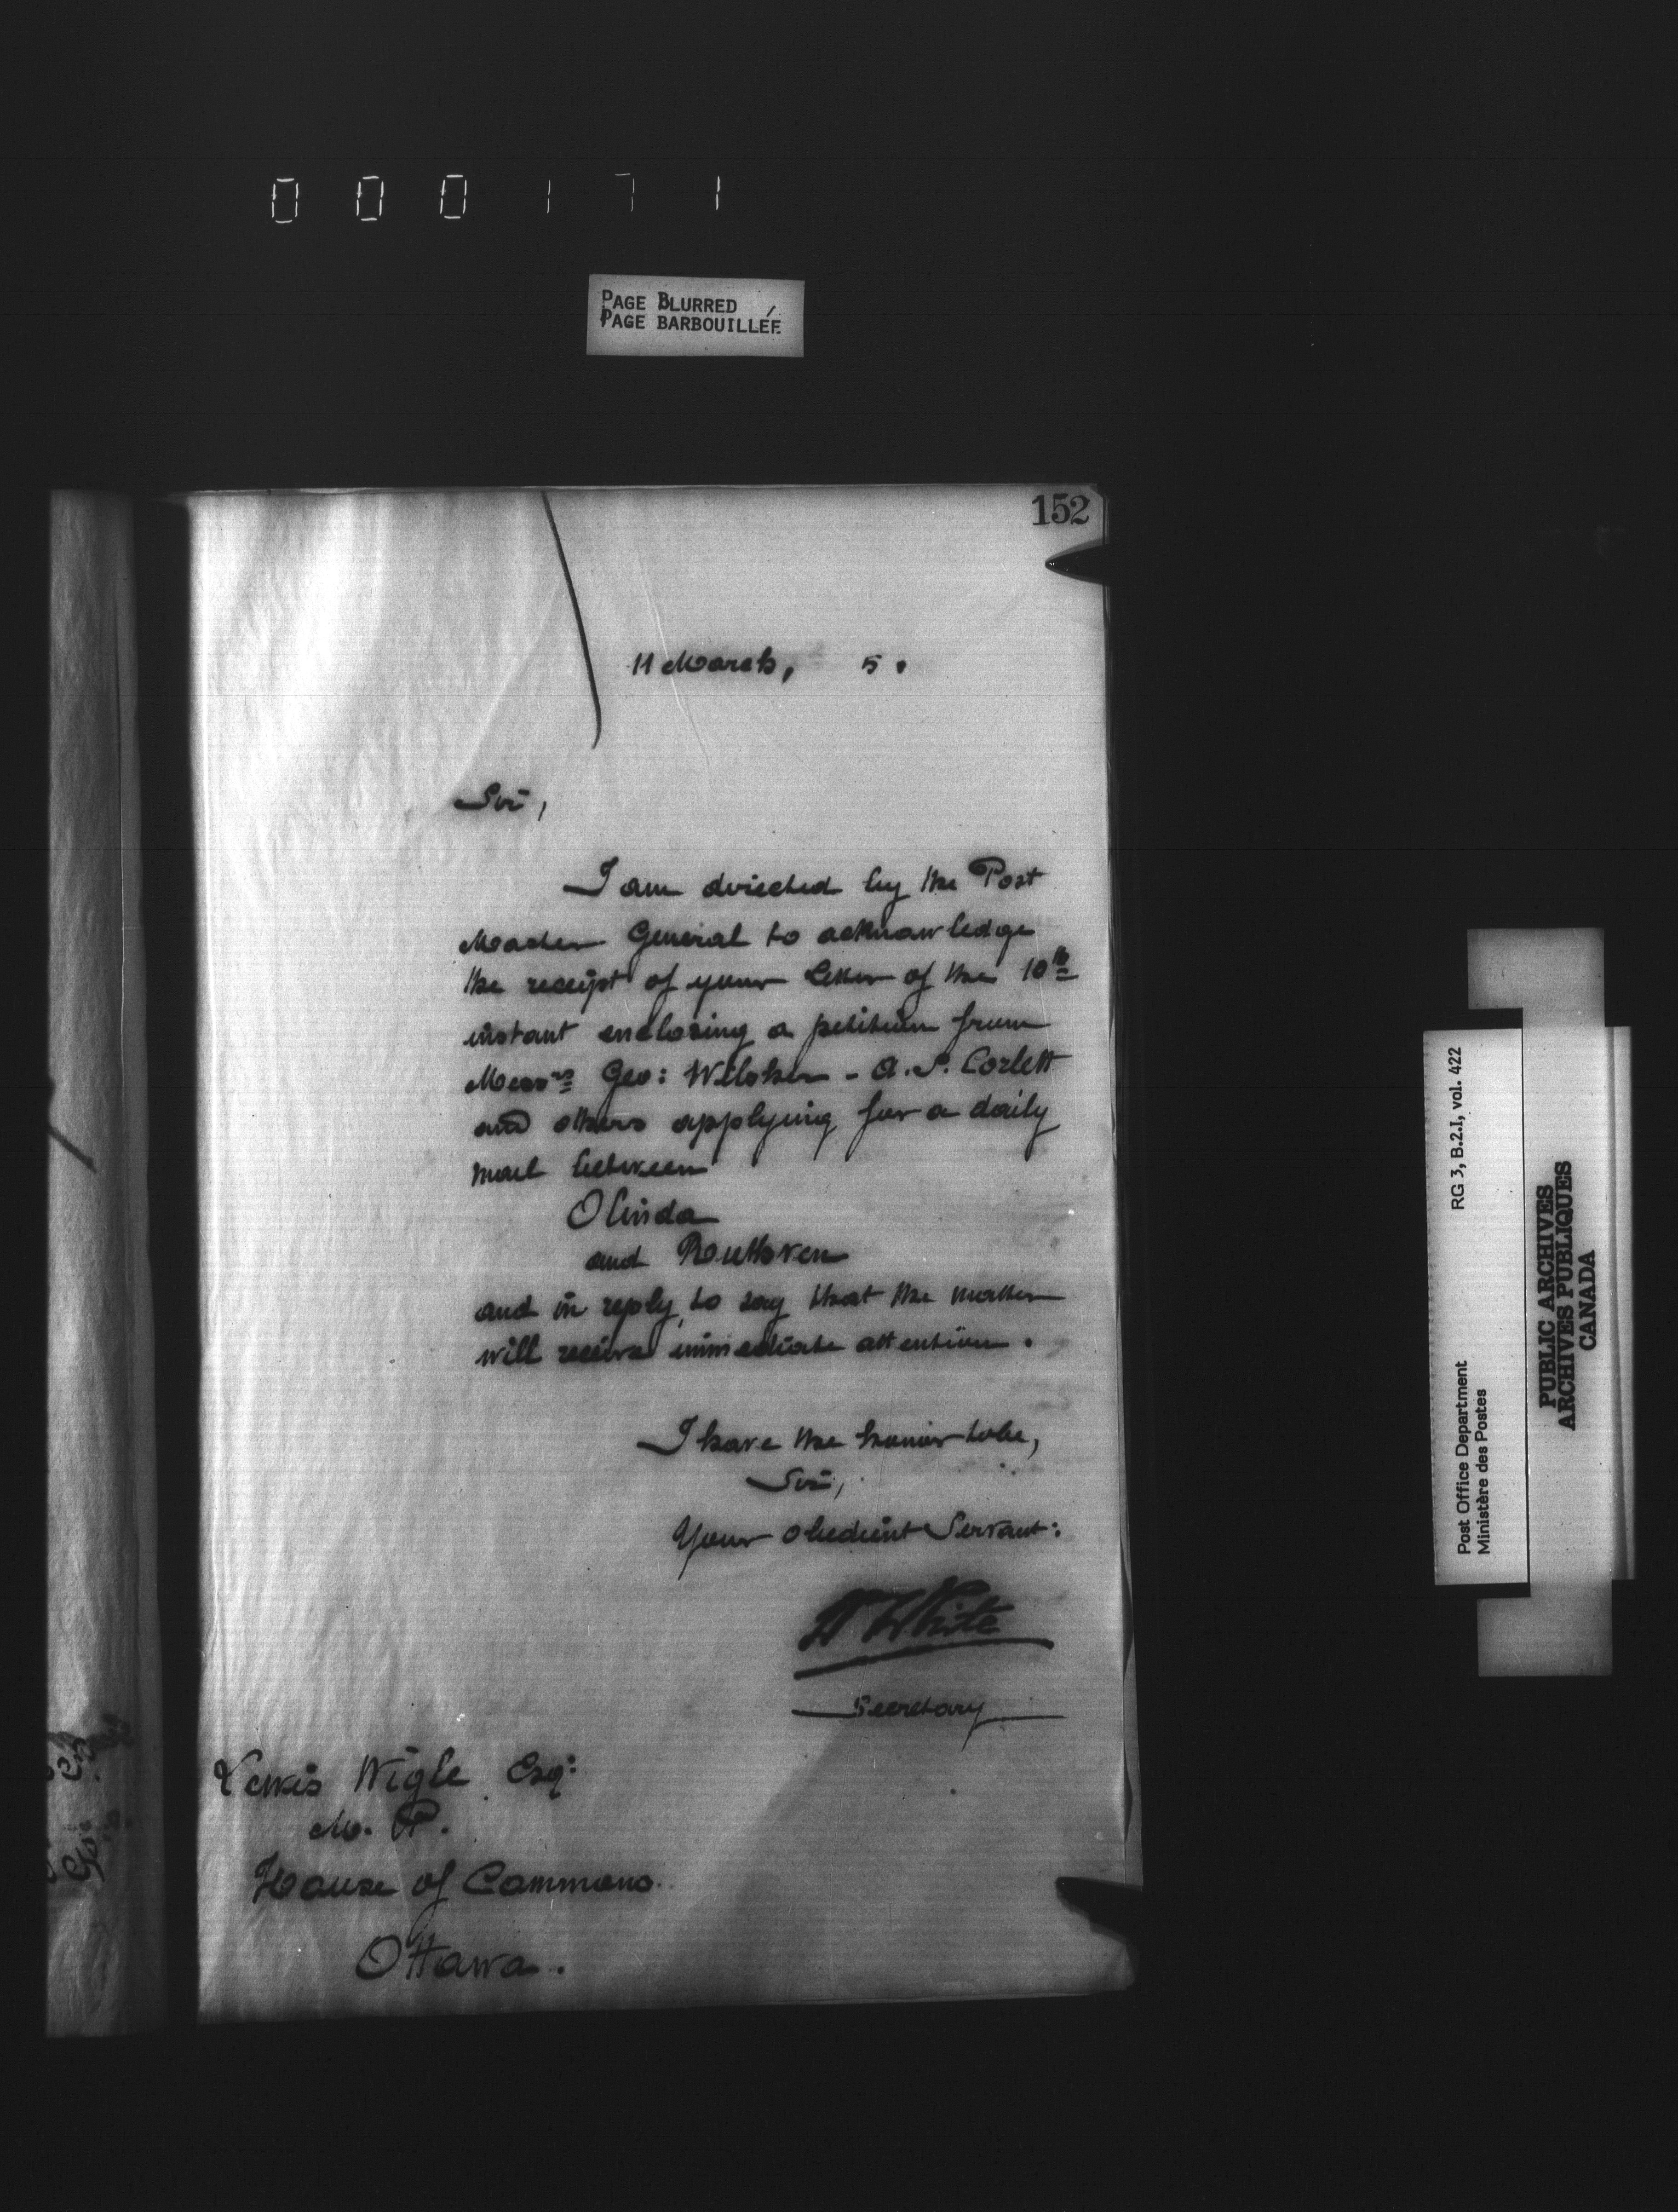 000171
PAGE BLURRED
PAGE BARBOUILLÉE
152
11 March, 5.
Sir,
I am directed by the Post
Master General to acknowledge
the receipt of your letter of the 10th
instant enclosing a petition from
Messrs Geo: - A. S. Corlett
and others applying for a daily
mail between
Olinda
and Ruthven
and in reply, to say that the matter
will receive immediate attention.
I have the honor to be,
Sir,
Your obedient Servant:
W White
Secretary
Lewis Wigle Esq:
M. P.
House of Commons.
Ottawa.
Post Office Department
Ministère des Postes
RG 3, B.2.I, vol. 422
PUBLIC ARCHIVES
ARCHIVES PUBLIQUES
CANADA